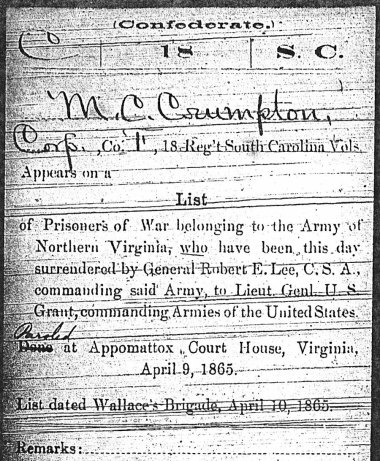 (Confederate.)
C 18 S. C.
M. C. Crumpton,
Corp., Co. I, 18 Reg't South Carolina Vols.
Appears on a
List
of Prisoners of War belonging to the Army of
Northern Virginia, who have been this day
surrendered by General Robert E. Lee, C. S. A.,
commanding said Army, to Lieut. Genl. U. S.
Grant, commanding Armies of the United States.
Paroled
Done at Appomattox Court House, Virginia,
April 9, 1865.
List dated Wallace's Brigade, April 10, 1865.
Remarks: